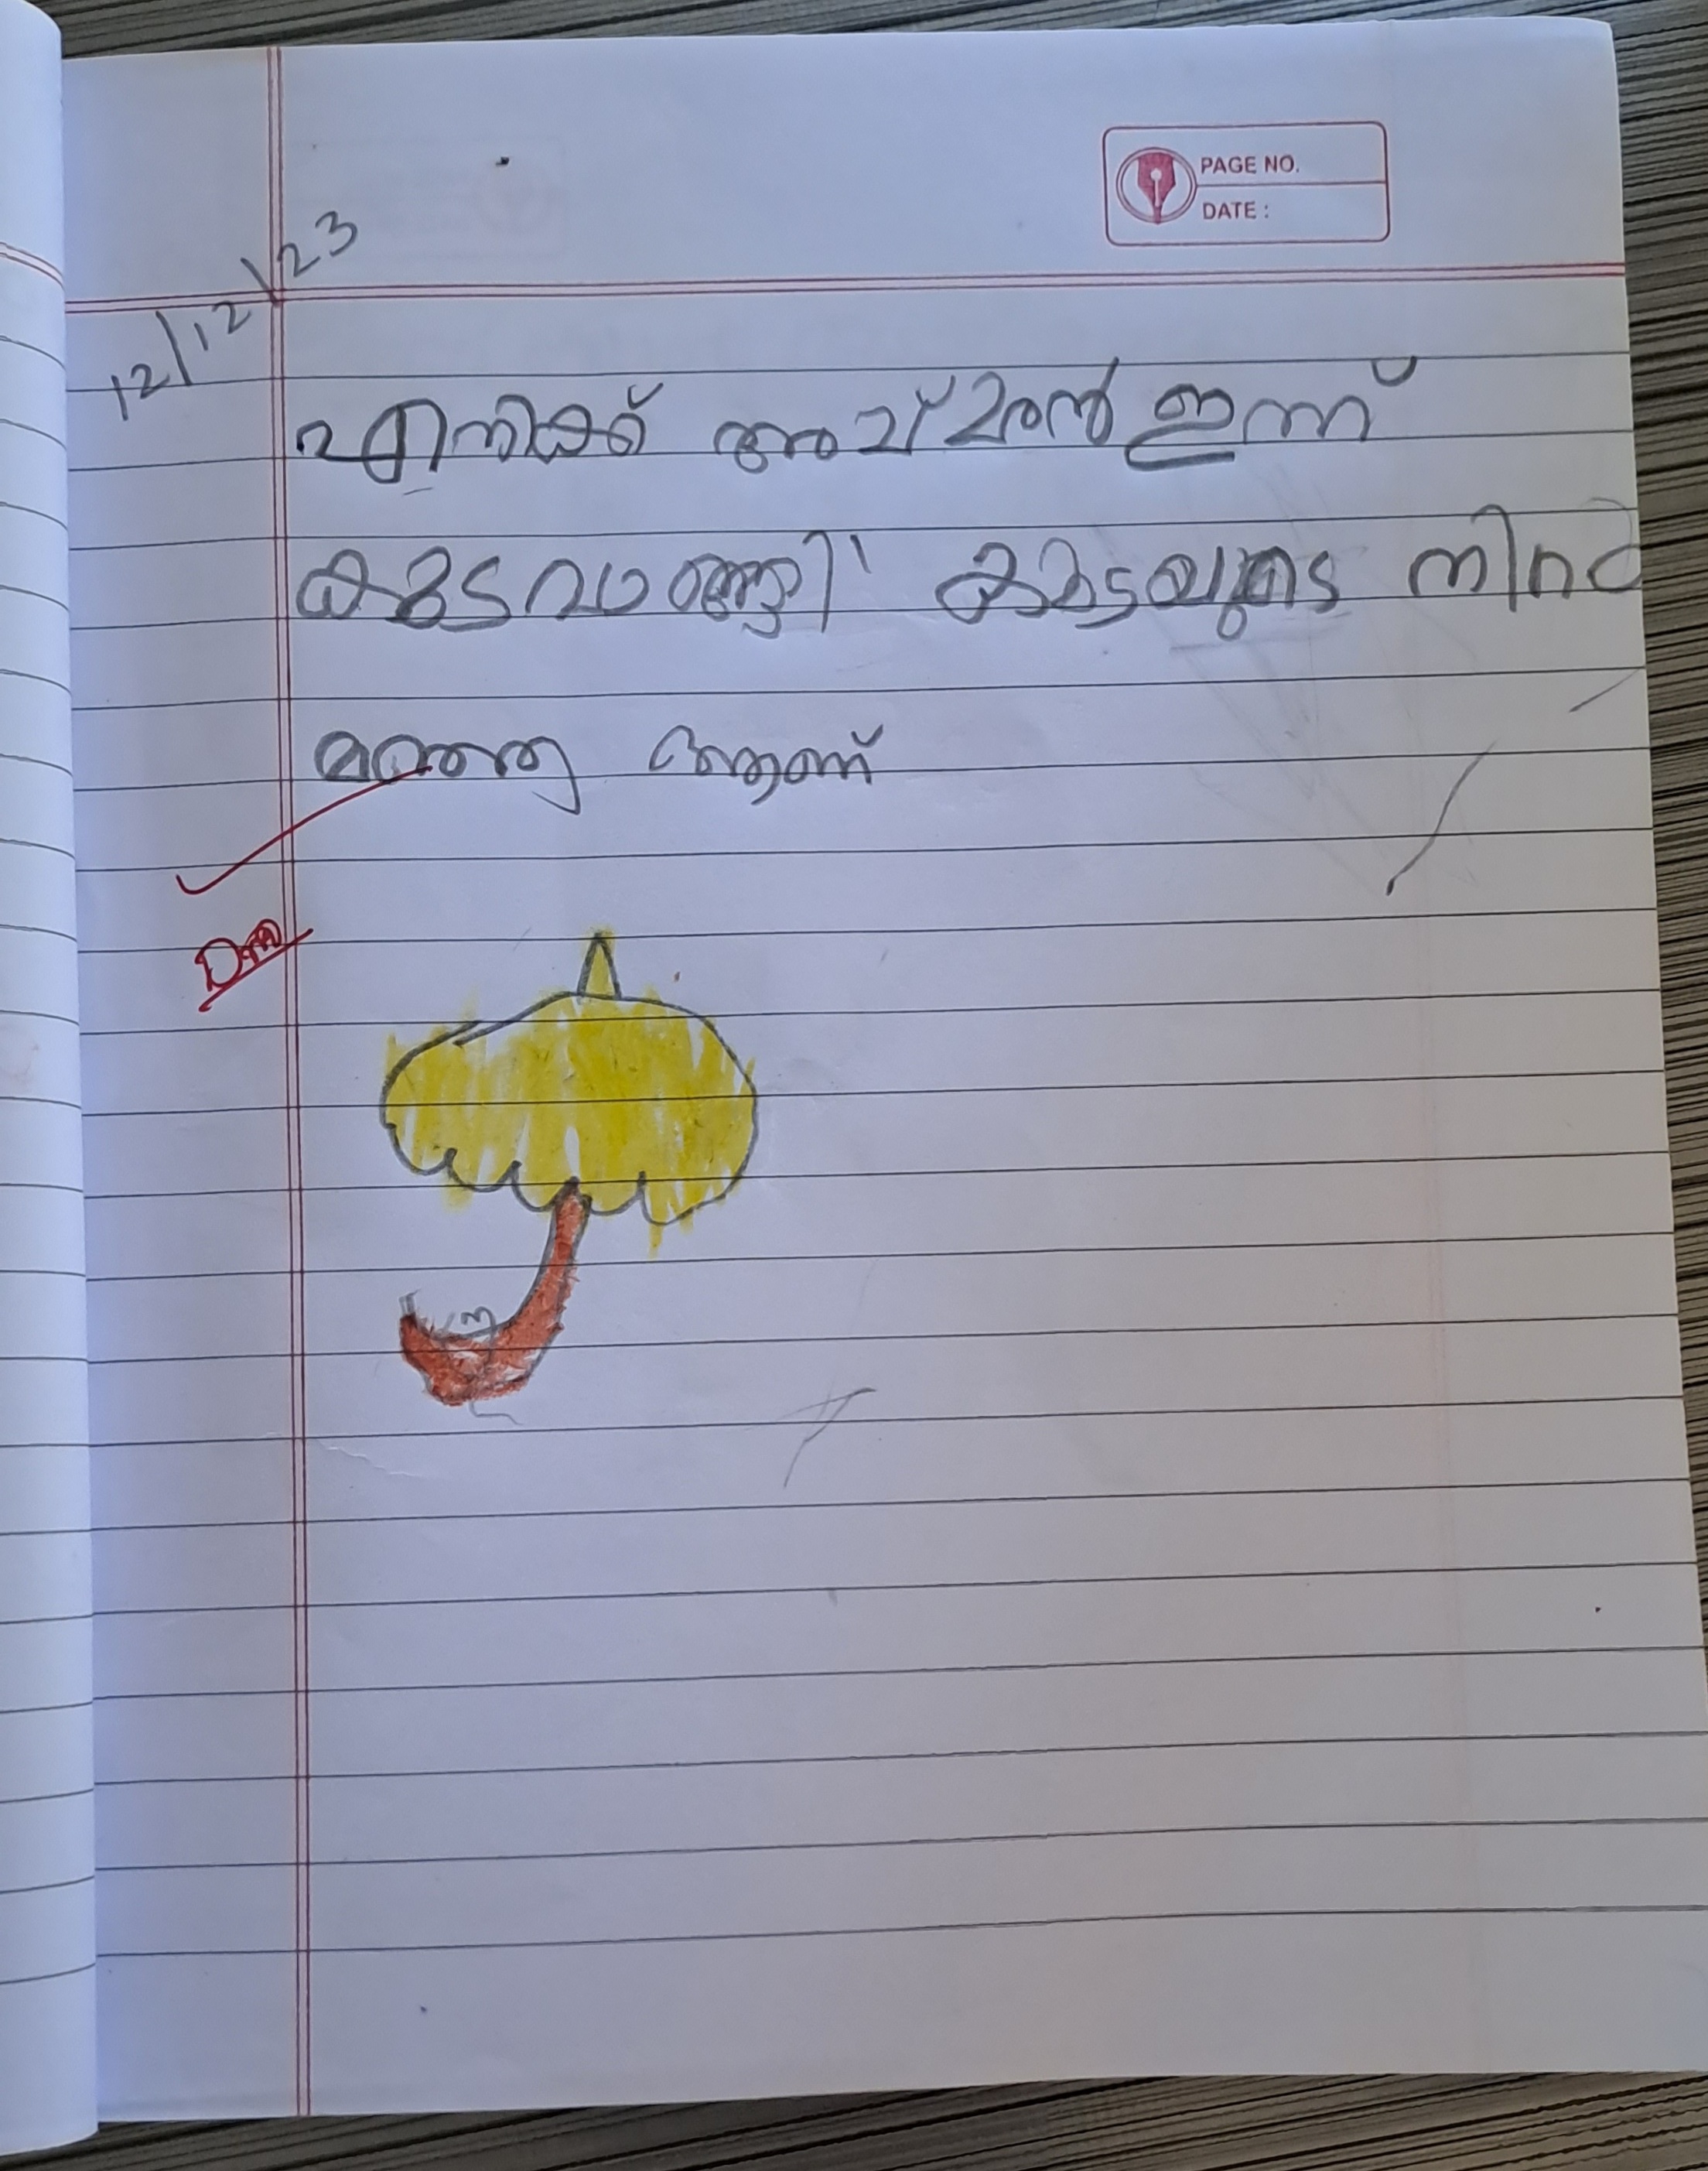 PAGE NO.
DATE :
12/12/23
എനിക്ക് അച്ചൻ ഇന്ന്
കുടവാങ്ങി കുടയുടെ നിറം
മഞ്ഞ ആണ്